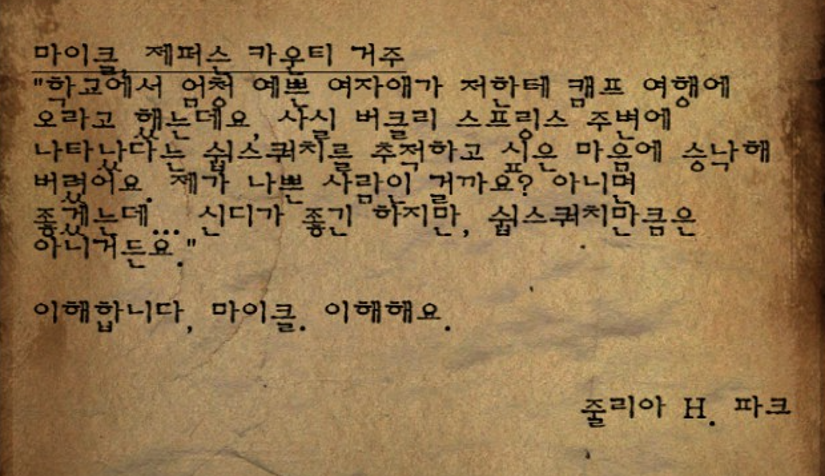 마이클, 제퍼슨 카운티 거주
"학교에서 엄청 예쁜 여자애가 저한테 캠프 여행에
오라고 했는데요, 사실 버클리 스프링스 주변에
나타났다는 쉽스쿼치를 추적하고 싶은 마음에 승낙해
버렸어요. 제가 나쁜 사람인 걸까요? 아니면
좋겠는데... 신디가 좋긴 하지만, 쉽스쿼치만큼은
아니거든요."
이해합니다, 마이클. 이해해요.
줄리아 H. 파크